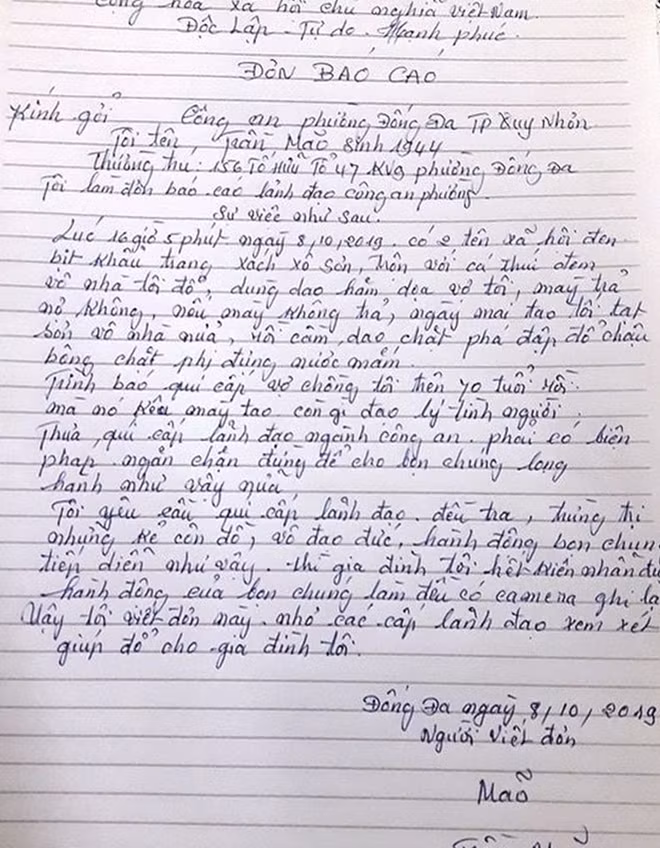 Cộng hòa xã hội chủ nghĩa Việt Nam.
Độc Lập - Tự do - Hạnh phúc.
ĐƠN BÁO CÁO
Kính gởi Công an phường Đống Đa TP Quy Nhơn
Tôi tên, Trần Mão sinh 1944
Thường trú: 156 Tố Hữu Tổ 47 KV9 phường Đống Đa
Tôi làm đơn báo cáo lãnh đạo công an phường.
Sự việc như sau.
Lúc 16 giờ 5 phút ngày 8, 10, 2019. có 2 tên xã hội đen
bịt khẩu trang xách xô sơn, trộn với cá thúi đem
vô nhà tôi đổ, dùng dao hăm dọa vợ tôi, mày trả
nợ không, nếu mày không trả, ngày mai tao tới tạt
sơn vô nhà nữa, rồi cầm dao chặt phá đập đổ chậu
bông chặt phi đựng nước mắm.
Trình báo quí cấp vợ chồng tôi trên 70 tuổi rồi.
mà nó kêu mày tao còn gì đạo lý tình người.
Thưa, quí cấp lãnh đạo ngành công an. phải có biện
pháp ngăn chặn đừng để cho bọn chúng lộng
hành như vậy nữa,
Tôi yêu cầu quí cấp lãnh đạo. đều tra, trừng trị
những kẻ côn đồ, vô đạo đức, hành động bọn chún
tiếp diễn như vậy. thì gia đình tôi hết kiên nhẫn đư
hành động của bọn chúng làm đều có camera ghi lạ
Vậy tôi viết đơn này. nhờ các cấp lãnh đạo xem xét
giúp đỡ cho gia đình tôi.
Đống Đa ngày 8, 10, 2019
Người viết đơn
Mão